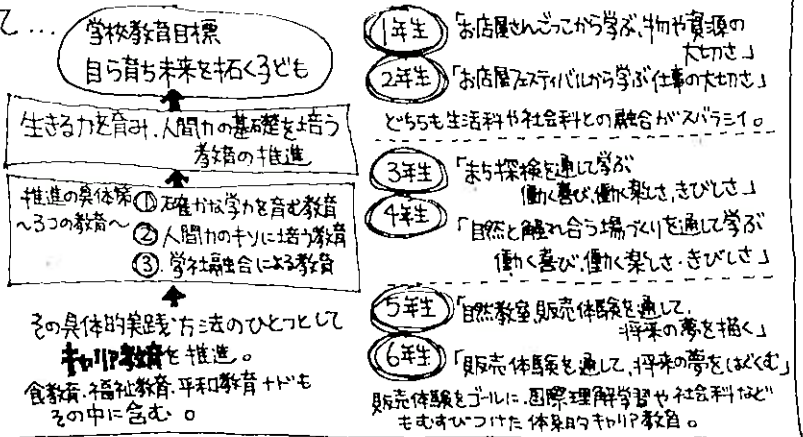 て…
学校教育目標
自ら育ち未来を拓く子ども
生きる力を育み、人間力の基礎を培う
教育の推進
推進の具体策
~3つの教育~
① 確かな学力を育む教育
② 人間力のキソに培う教育
③ 学社融合による教育
その具体的実践方法のひとつとして
キャリア教育を推進。
食教育、福祉教育、平和教育ナドも
その中に含む。
1年生 「お店屋さんごっこから学ぶ、物や資源の
大切さ」
2年生 「お店屋フェスティバルから学ぶ仕事の大切さ」
どちらも生活科や社会科との融合がスバラシイ。
3年生 「まち探検を通して学ぶ
働く喜び、働く楽しさ、きびしさ」
4年生 「自然と触れ合う場づくりを通して学ぶ
働く喜び、働く楽しさ・きびしさ」
5年生 「自然教室、販売体験を通して、
将来の夢を描く」
6年生 「販売体験を通して、将来の夢をはぐくむ」
販売体験をゴールに、国際理解学習や社会科など
もむすびつけた体系的キャリア教育。